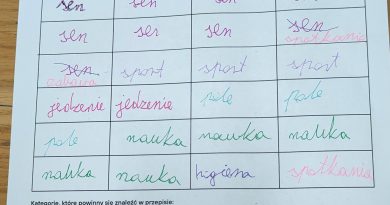 sen
sen ser sen sen spotkania
sen zabawa sport sport sport
jedzenie jedzenie pole pole
pole nauka nauka nauka
nauka nauka higiena spotkania
Kategorie, które powinny się znaleźć w przepisie: